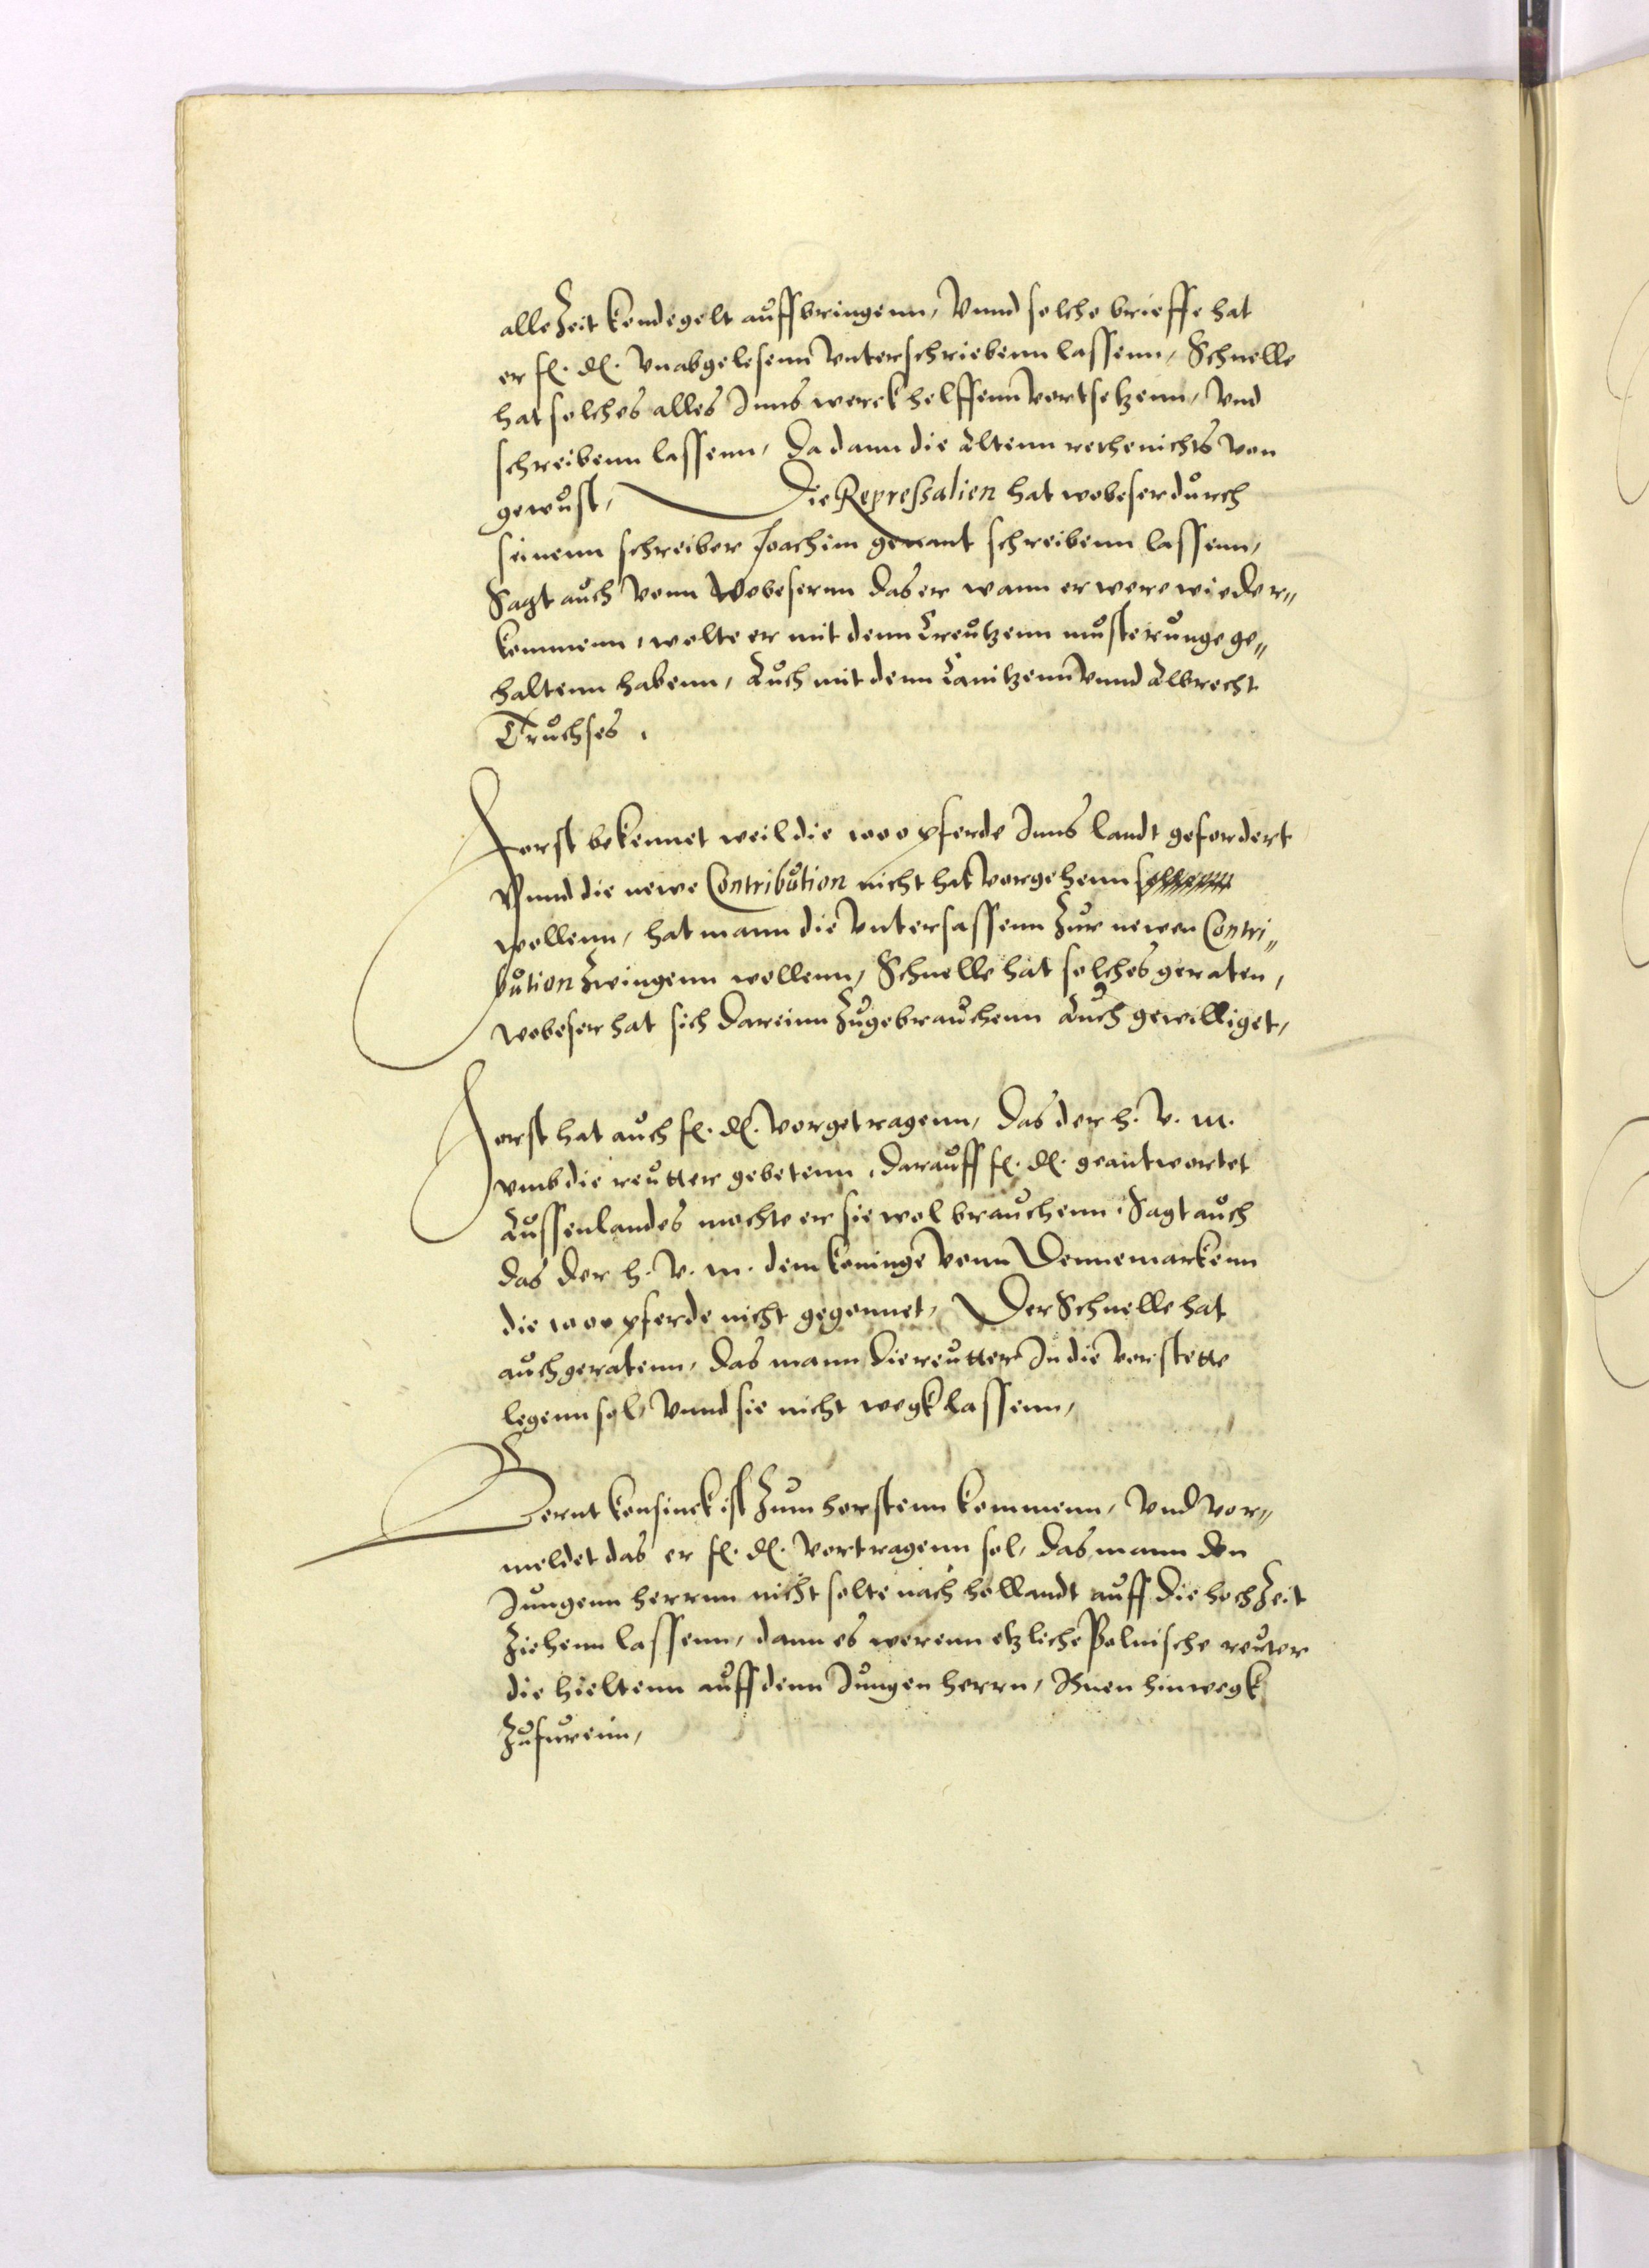 alle Zeit konde gelt auffbringenn, Vnnd solche brieffe hat
er f. d. Vnabgelesenn Vnterschriebenn lassenn, Schnelle
hat solches alles Inns werck helffenn Vortsetzenn, Vnd
schreibenn lassenn, Da dann die Altenn rethe nichts von
gewust, Die Repressalien hat wobeser durch
seinenn schreiber Joachim genant schreibenn lassenn,
Sagt auch Vonn Wobesernn das er wann er were wieder„
kommenn, wolte er mit denn Creutzenn musterunge ge„
haltenn habenn, Auch mit denn Canitzenn Vnnd Albrecht
Truchses.
Horst bekennet weil die 1000 pferde Inns landt gefordert
Vnnd die newe Contribution nicht hat Vorgehenn
wollenn, hat mann die Vntersassenn Zur newen Contri„
bution Zwingenn wollenn, Schnelle hat solches geraten,
wobeser hat sich dareinn Zugebrauchenn Auch gewilliget,
Horst hat auch f. d. Vorgetragenn, das der h. V. M.
vmb die reutter gebetenn, darauff f. d. geantwortet
Aussenlandes mochte er sie wol brauchenn, Sagt auch
das der h. V. M. dem koninge Vonn Dennemarkenn
die 1000 pferde nicht gegonnet, Der Schnelle hat
auch geratenn, das mann die reutter In die Vorstette
legenn sol, Vnnd sie nicht wegk lassenn,
Bernt konsinck ist Zum horstenn kommenn, Vnd vor„
meldet das er f. d. Vortragenn sol, das mann den
Jungenn herrnn nicht solte nach hollandt auff die hochZeit
Ziehenn lassenn, dann es werenn etzliche Polnische reuter
die hieltenn auff denn Jungen herrn, Ihnen hinwegk
Zufurenn,